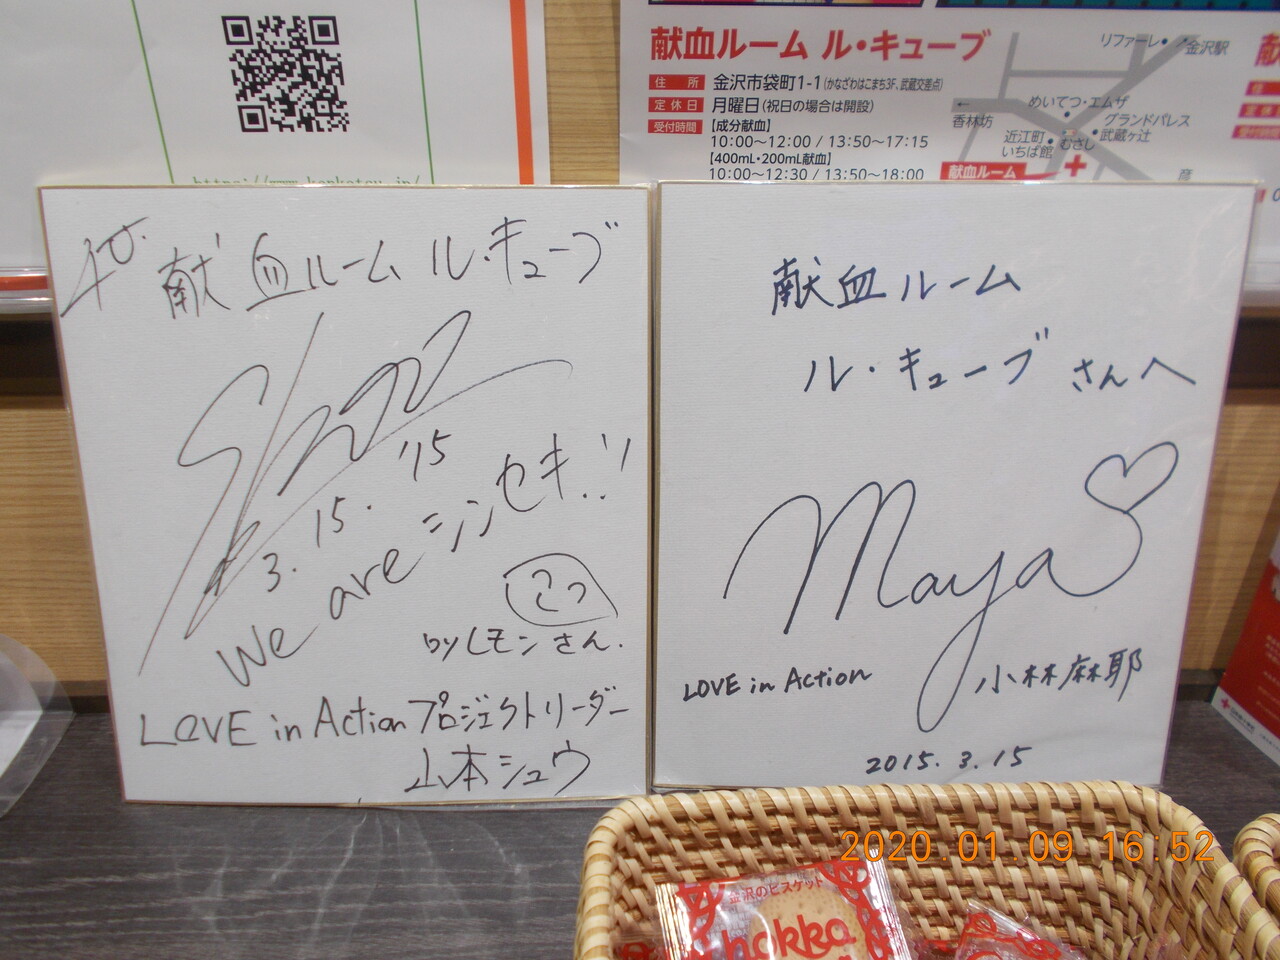 https://www.kenketsu.jp/
献血ルーム ル・キューブ
住所 金沢市袋町1-1(かなざわはこまち3F、武蔵交差点)
定休日 月曜日(祝日の場合は開設)
受付時間 【成分献血】
10:00〜12:00 / 13:50〜17:15
【400mL・200mL献血】
10:00〜12:30 / 13:50〜18:00
リファーレ
金沢駅
←
香林坊
めいてつ・エムザ
グランドパレス
近江町
いちば館
むさし
武蔵ヶ辻
献血ルーム
彦
献血ルーム ル・キューブ
'15
3. 15.
We are シンセキ!!
by レモンさん.
LOVE in Action プロジェクトリーダー
山本シュウ
献血ルーム
ル・キューブ さんへ
Maya
LOVE in Action
小林麻耶
2015. 3. 15
2020.01.09 16:52
金沢のビスケット
hokka